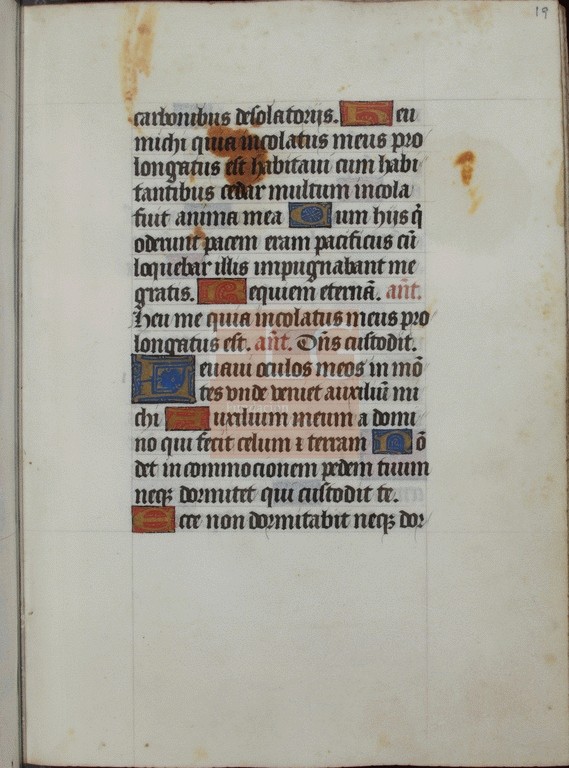 19
carbonibus desolatorijs. Heu
michi quia incolatus meus pro
longatus est habitaui cum habi
tantibus cedar multum incola
fuit anima mea Cum hijs q̇
oderunt pacem eram pacificus cū
loquebar illis impugnabant me
gratis. Requiem eternā. ant̄.
Heu me quia incolatus meus pro
longatus est. ant̄. Dn̄s custodit.
Leuaui oculos meos in mō
tes vnde veniet auxiliū mi
chi Auxilium meum a domi
no qui fecit celum ⁊ terram Nō
det in commocionem pedem tuum
neqꝫ dormitet qui custodit te.
Ecce non dormitabit neqꝫ dor